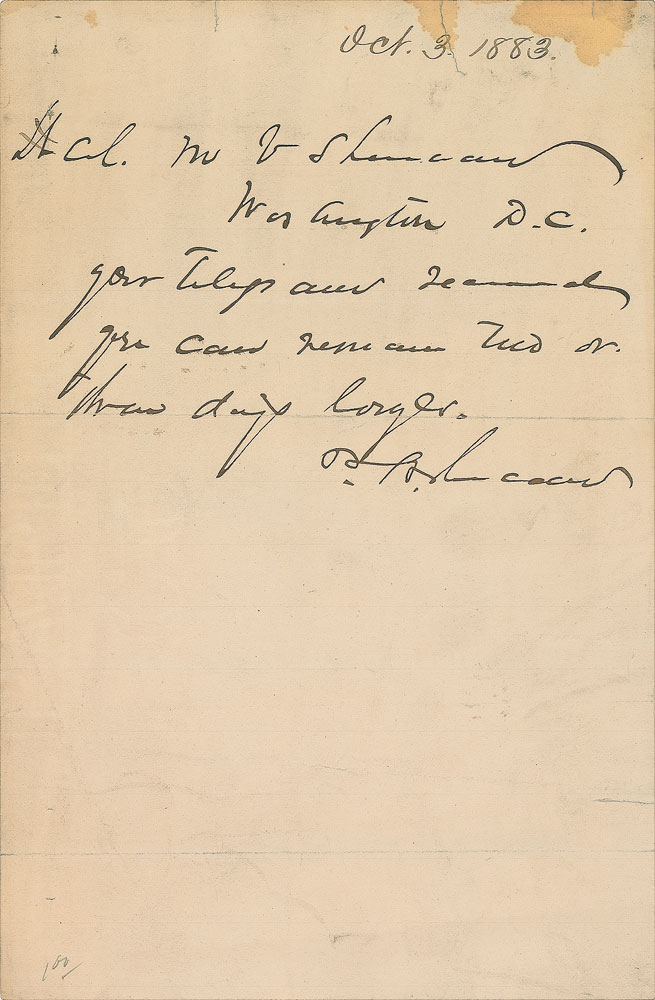 Oct. 3. 1883.
Lt Col. M V Sheridan
Washington D.C.
your telegram received
you can remain two or
three days longer.
P. H. Sheridan
100